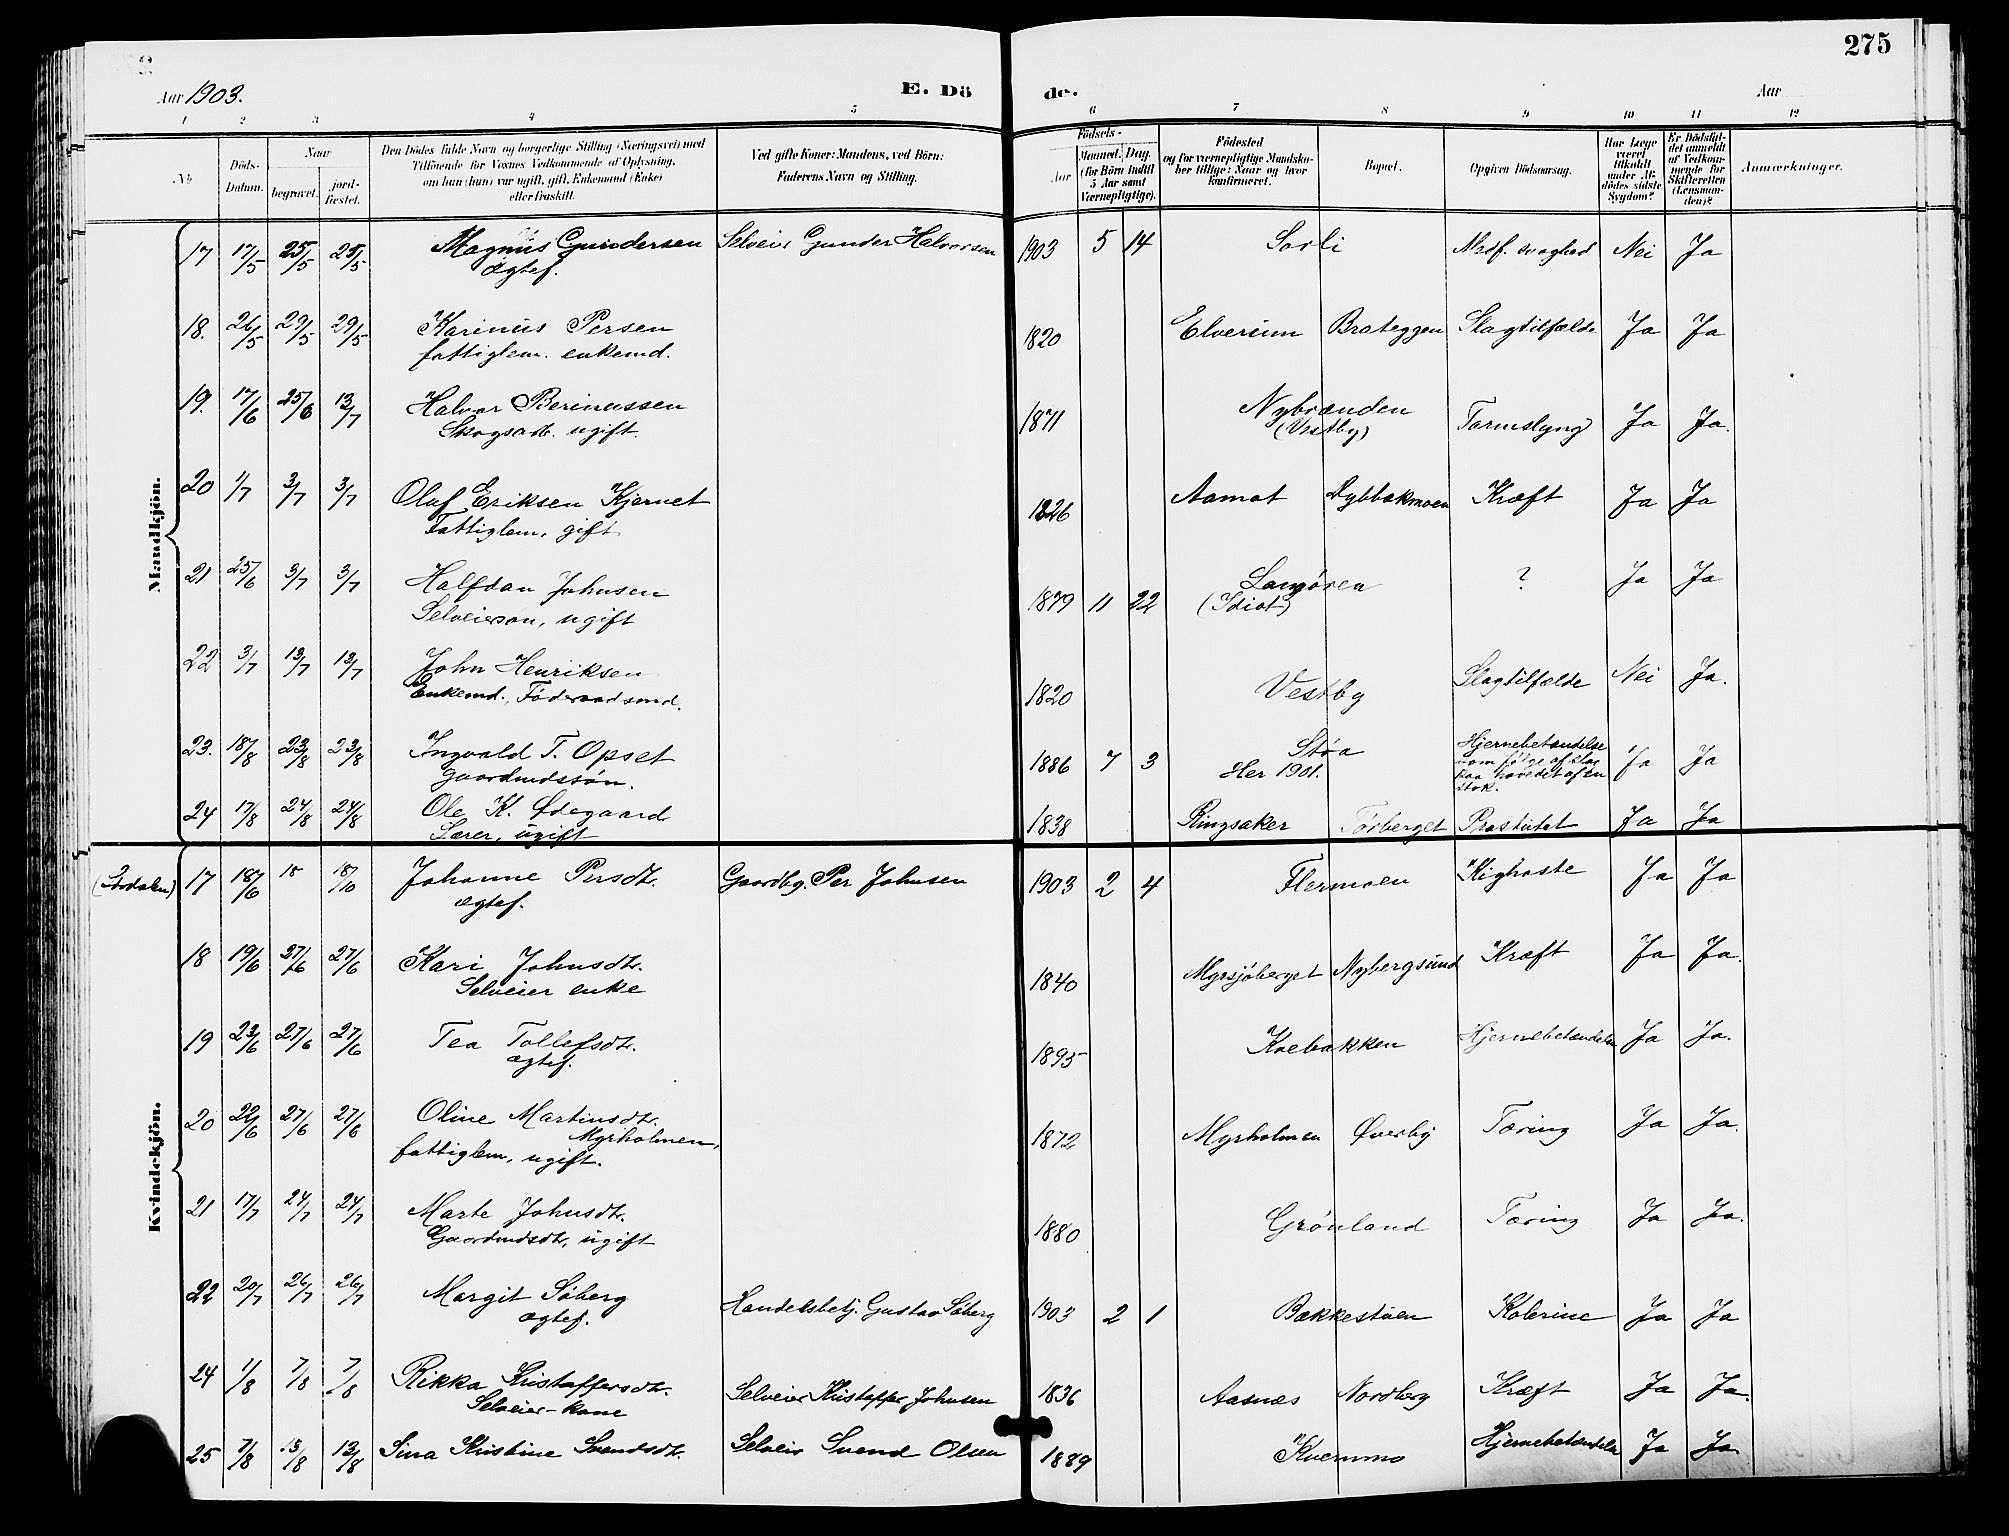 275
Aar 1903.
E. Dö de.
Aar
1 2 3 4 5 6 7 8 9 10 11 12
No
Döds-Datum.
Naar
begravet.
jord-fæstet.
Den Dödes fulde Navn og borgerlige Stilling (Næringsvei) med
Tilföiende for Voxnes Vedkommende af Oplysning,
om han (hun) var ugift, gift, Enkemand (Enke)
eller fraskilt.
Ved gifte Koner: Mandens, ved Börn:
Faderens Navn og Stilling.
Födsels-
Aar
Maaned. Dag.
(for Börn indtil
5 Aar samt
Værnepligtige).
Födested
og for værnepligtige Mandska-
ber tillige: Naar og hvor
konfirmeret.
Bopæl.
Opgiven Dödsaarsag.
Har Læge
været
tilkaldt
under Af-
dödes sidste
Sygdom?
Er Dödsfal-
det anmeldt
af Vedkom-
mende for
Skifteretten
(Lensman-
den)?
Anmærkninger.
Mandkjön.
17 17/5 25/5 25/5 Magnus Gundersen Selveier Gunder Halvorsen 1903 5 14 Sorli Medf. svaghed Nei Ja
ægtef.
18. 26/5 29/5 29/5 Karinus Persen 1820 Elverum Brateggen Slagtilfælde Ja Ja
fattiglem. enkemd.
19. 17/6 25/6 13/7 Halvor Berinussen 1871 Nybrænden Tarmslyng Ja Ja.
Skogsarb. ugift. (Vestby)
20 1/7 3/7 3/7 Oluf Eriksen Kjernet 1826 Aamot Dybbækmoen Kræft Ja Ja
Fattiglem, gift
21 25/6 3/7 3/7 Halfdan Johnsen 1879 11 22 Langøren ? Ja Ja
Selveiersøn, ugift (Idiot)
22 3/7 13/7 13/7 John Henriksen 1820 Vestby Slagtilfælde Nei Ja.
Enkemd., Føderaadsmd.
23. 18/8 23/8 23/8 Ingvald T. Opset 1886 7 3 Støa Hjernebetændelse Ja Ja
Gaardmdssøn. Her 1901. som følge af slag
paa hovedet af en
stok.
24 17/8 24/8 24/8 Ole K. Ødegaard 1838 Ringsaker Tørberget Prostatit Ja Ja
Lærer, ugift
Kvindekjön.
17 18/6 18 18/10 Johanne Persdtr. Gaardbg. Per Johnsen 1903 2 4 Flermoen Kighoste Ja Ja
ægtef.
18 19/6 27/6 27/6 Kari Johnsdtr. 1840 Myrsjøberget Nybergsund Kræft Ja Ja.
Selveier enke
19 23/6 27/6 27/6 Tea Tollefsdtr. 1895 Koebakken Hjernebetændelse Ja Ja.
ægtef.
20 22/6 27/6 27/6 Oline Martinsdtr. 1872 Myrholmen Øverby Tæring Ja Ja.
Myrholmen,
fattiglem, ugift.
21 17/7 24/7 24/7 Marte Johnsdtr. 1880 Grønland Tæring Ja Ja.
Gaardmdsdtr, ugift
22 20/7 26/7 26/7 Margit Søberg Handelsbetj. Gustav Søberg 1903 2 1 Bakkestuen Kolerine Ja Ja
ægtef.
24 1/8 7/8 7/8 Rikka Kristoffersdtr. Selveier Kristoffer Johnsen 1836 Aasnæs Nordberg Kræft Ja Ja.
Selveier-kone
25 7/8 13/8 13/8 Sina Kristine Svendsdtr. Selveier Svend Olsen 1889 Kvernmo Hjernebetændelse Ja Ja.